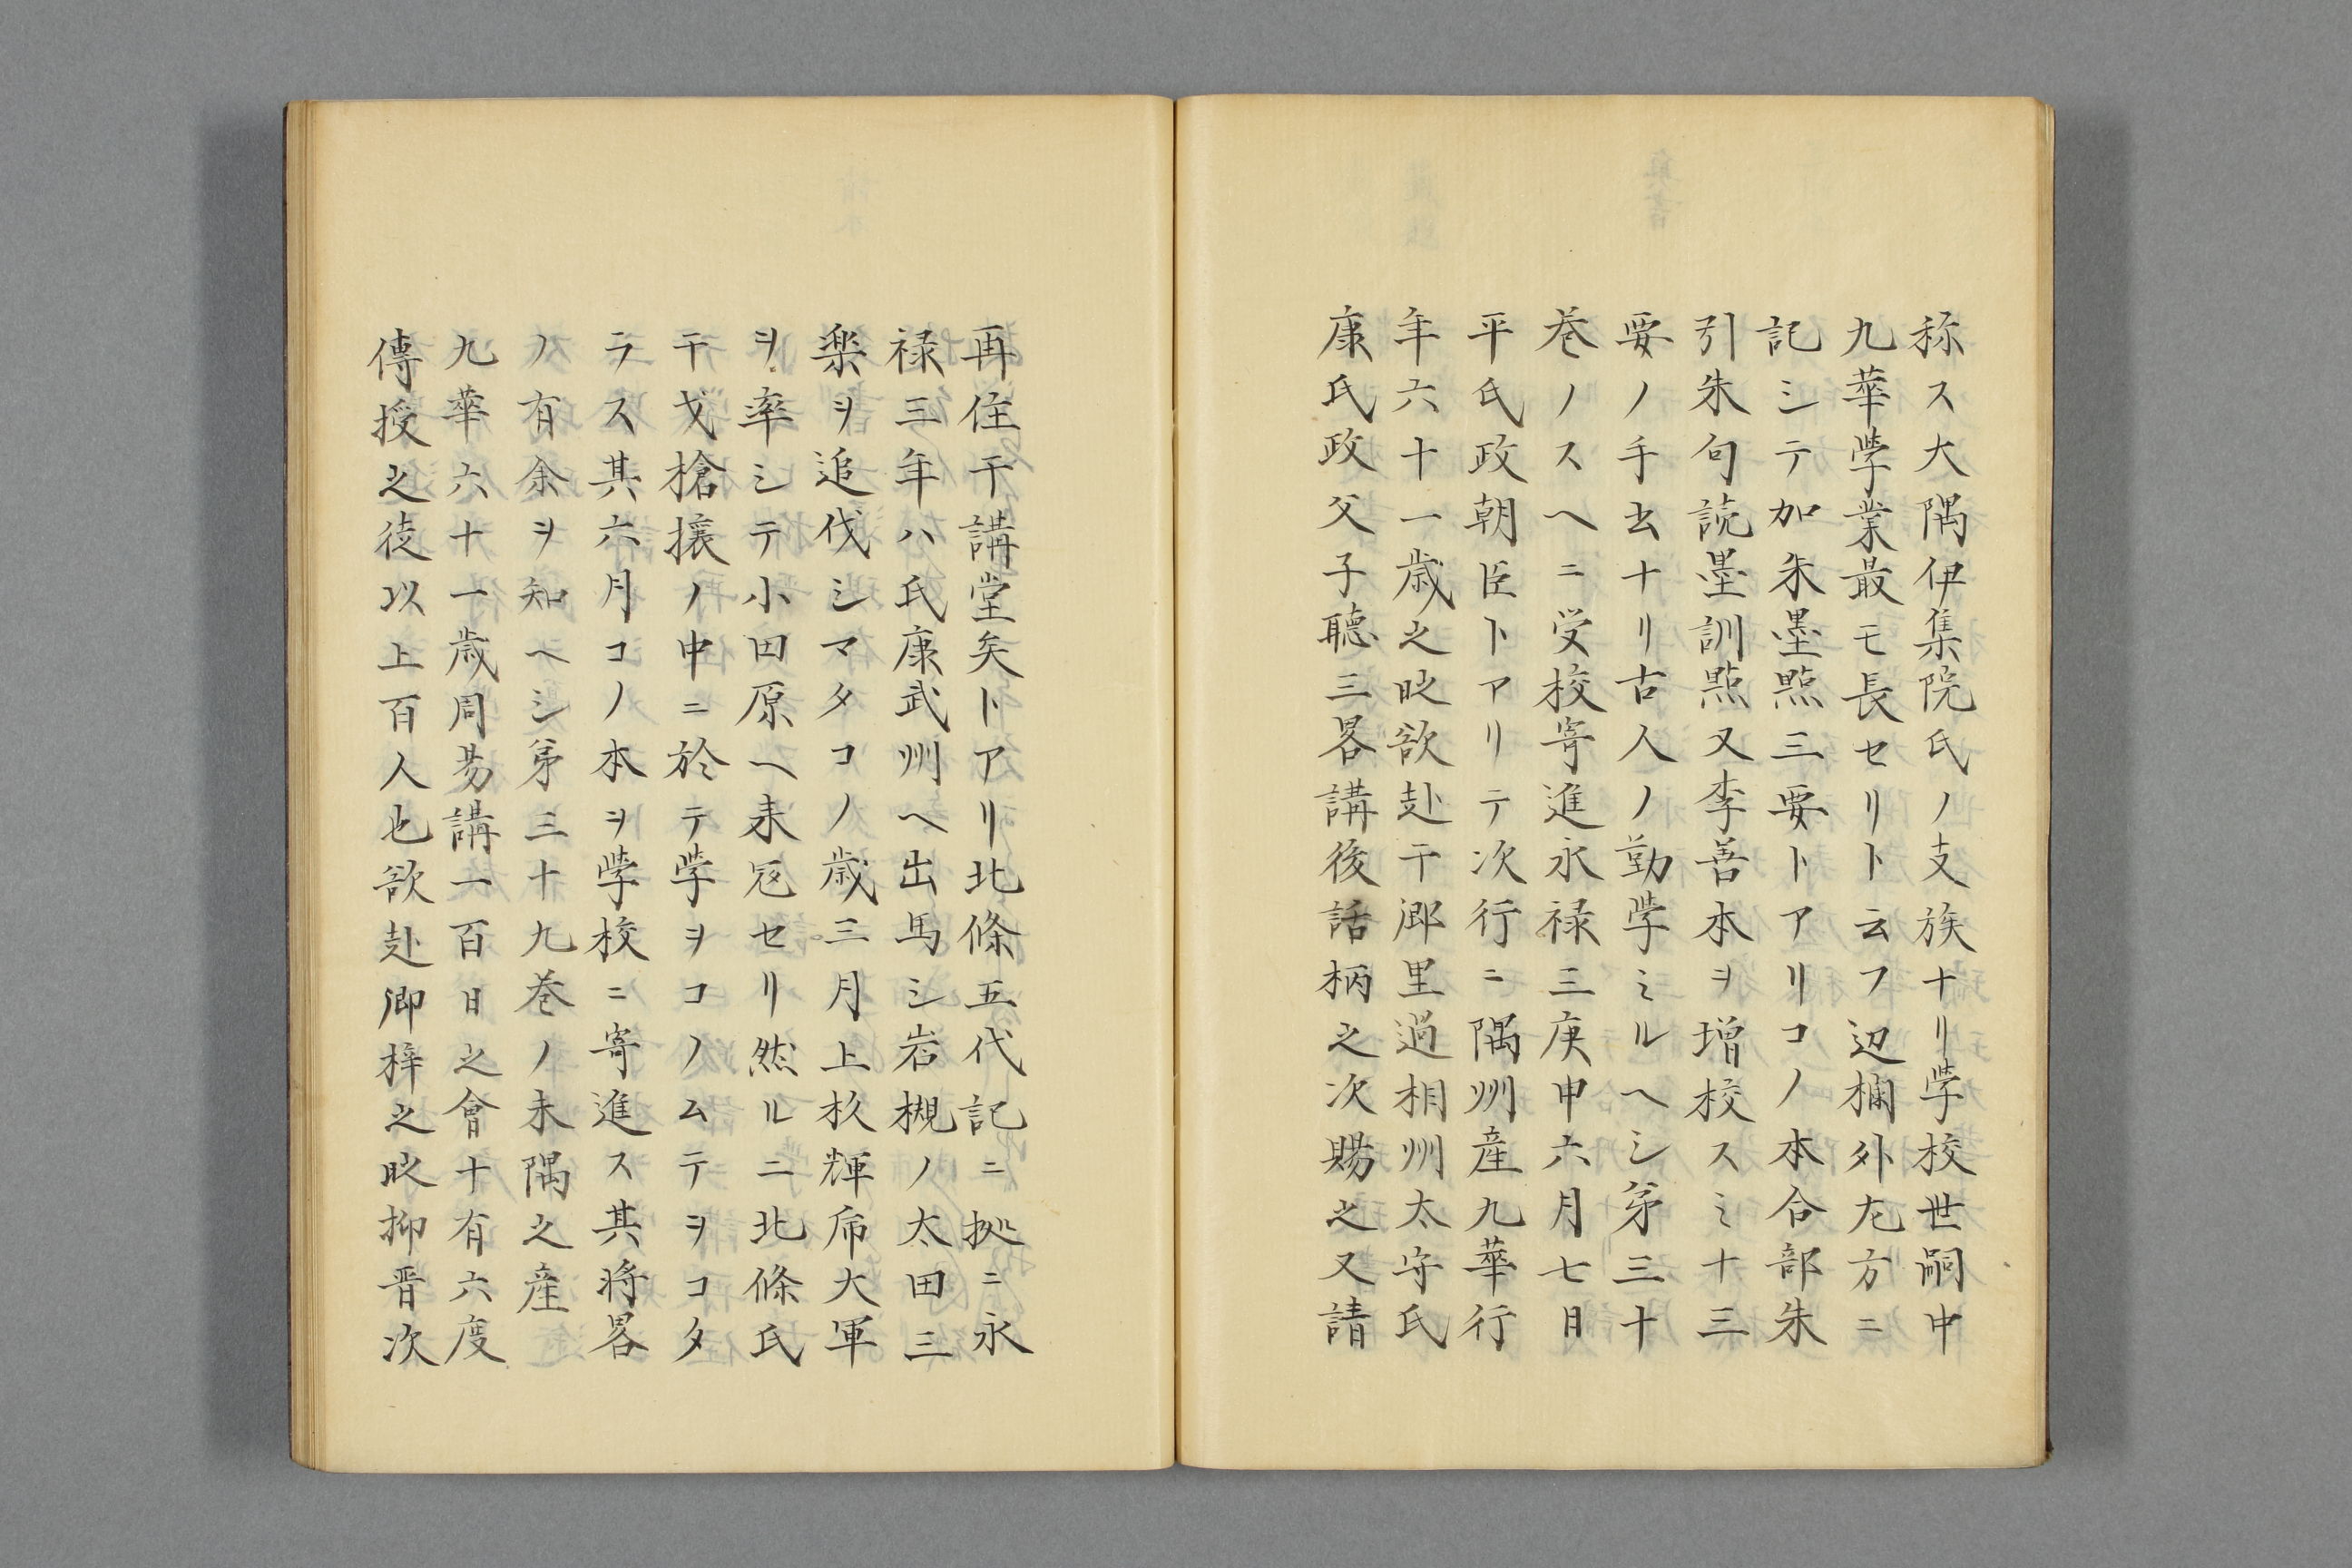 称ス大隅伊集院氏ノ支族ナリ学校世嗣中
九華学業最モ長セリト云フ辺欄外左方ニ
記シテ加朱墨點三要トアリコノ本合部朱
引朱句読墨訓點又李善本ヲ増校スミナ三
要ノ手玄ナリ古人ノ勤学ミルヘシ第三十
巻ノスヘニ受校寄進永禄三庚申六月七日
平氏政朝臣トアリテ次行ニ隅州産九華行
年六十一歳之時欲赴于郷里過相州太守氏
康氏政父子聴三畧講後話柄之次賜之又請
再住于講堂矣トアリ北條五代記ニ拠ニ永
禄三年ハ氏康武州ヘ出馬シ岩槻ノ太田三
楽ヲ追伐シマタコノ歳三月上杦輝虎大軍
ヲ率シテ小田原ヘ来冦セリ然ルニ北條氏
干戈槍攘ノ中ニ於テ学ヲコノムテヲコタ
ラス其六月コノ本ヲ学校ニ寄進ス其将畧
ノ有余ヲ知ヘシ第三十九巻ノ末隅之産
九華六十一歳周昜講一百日之會十有六度
傳授之徒以上百人也欲赴卿梓之時抑晋次